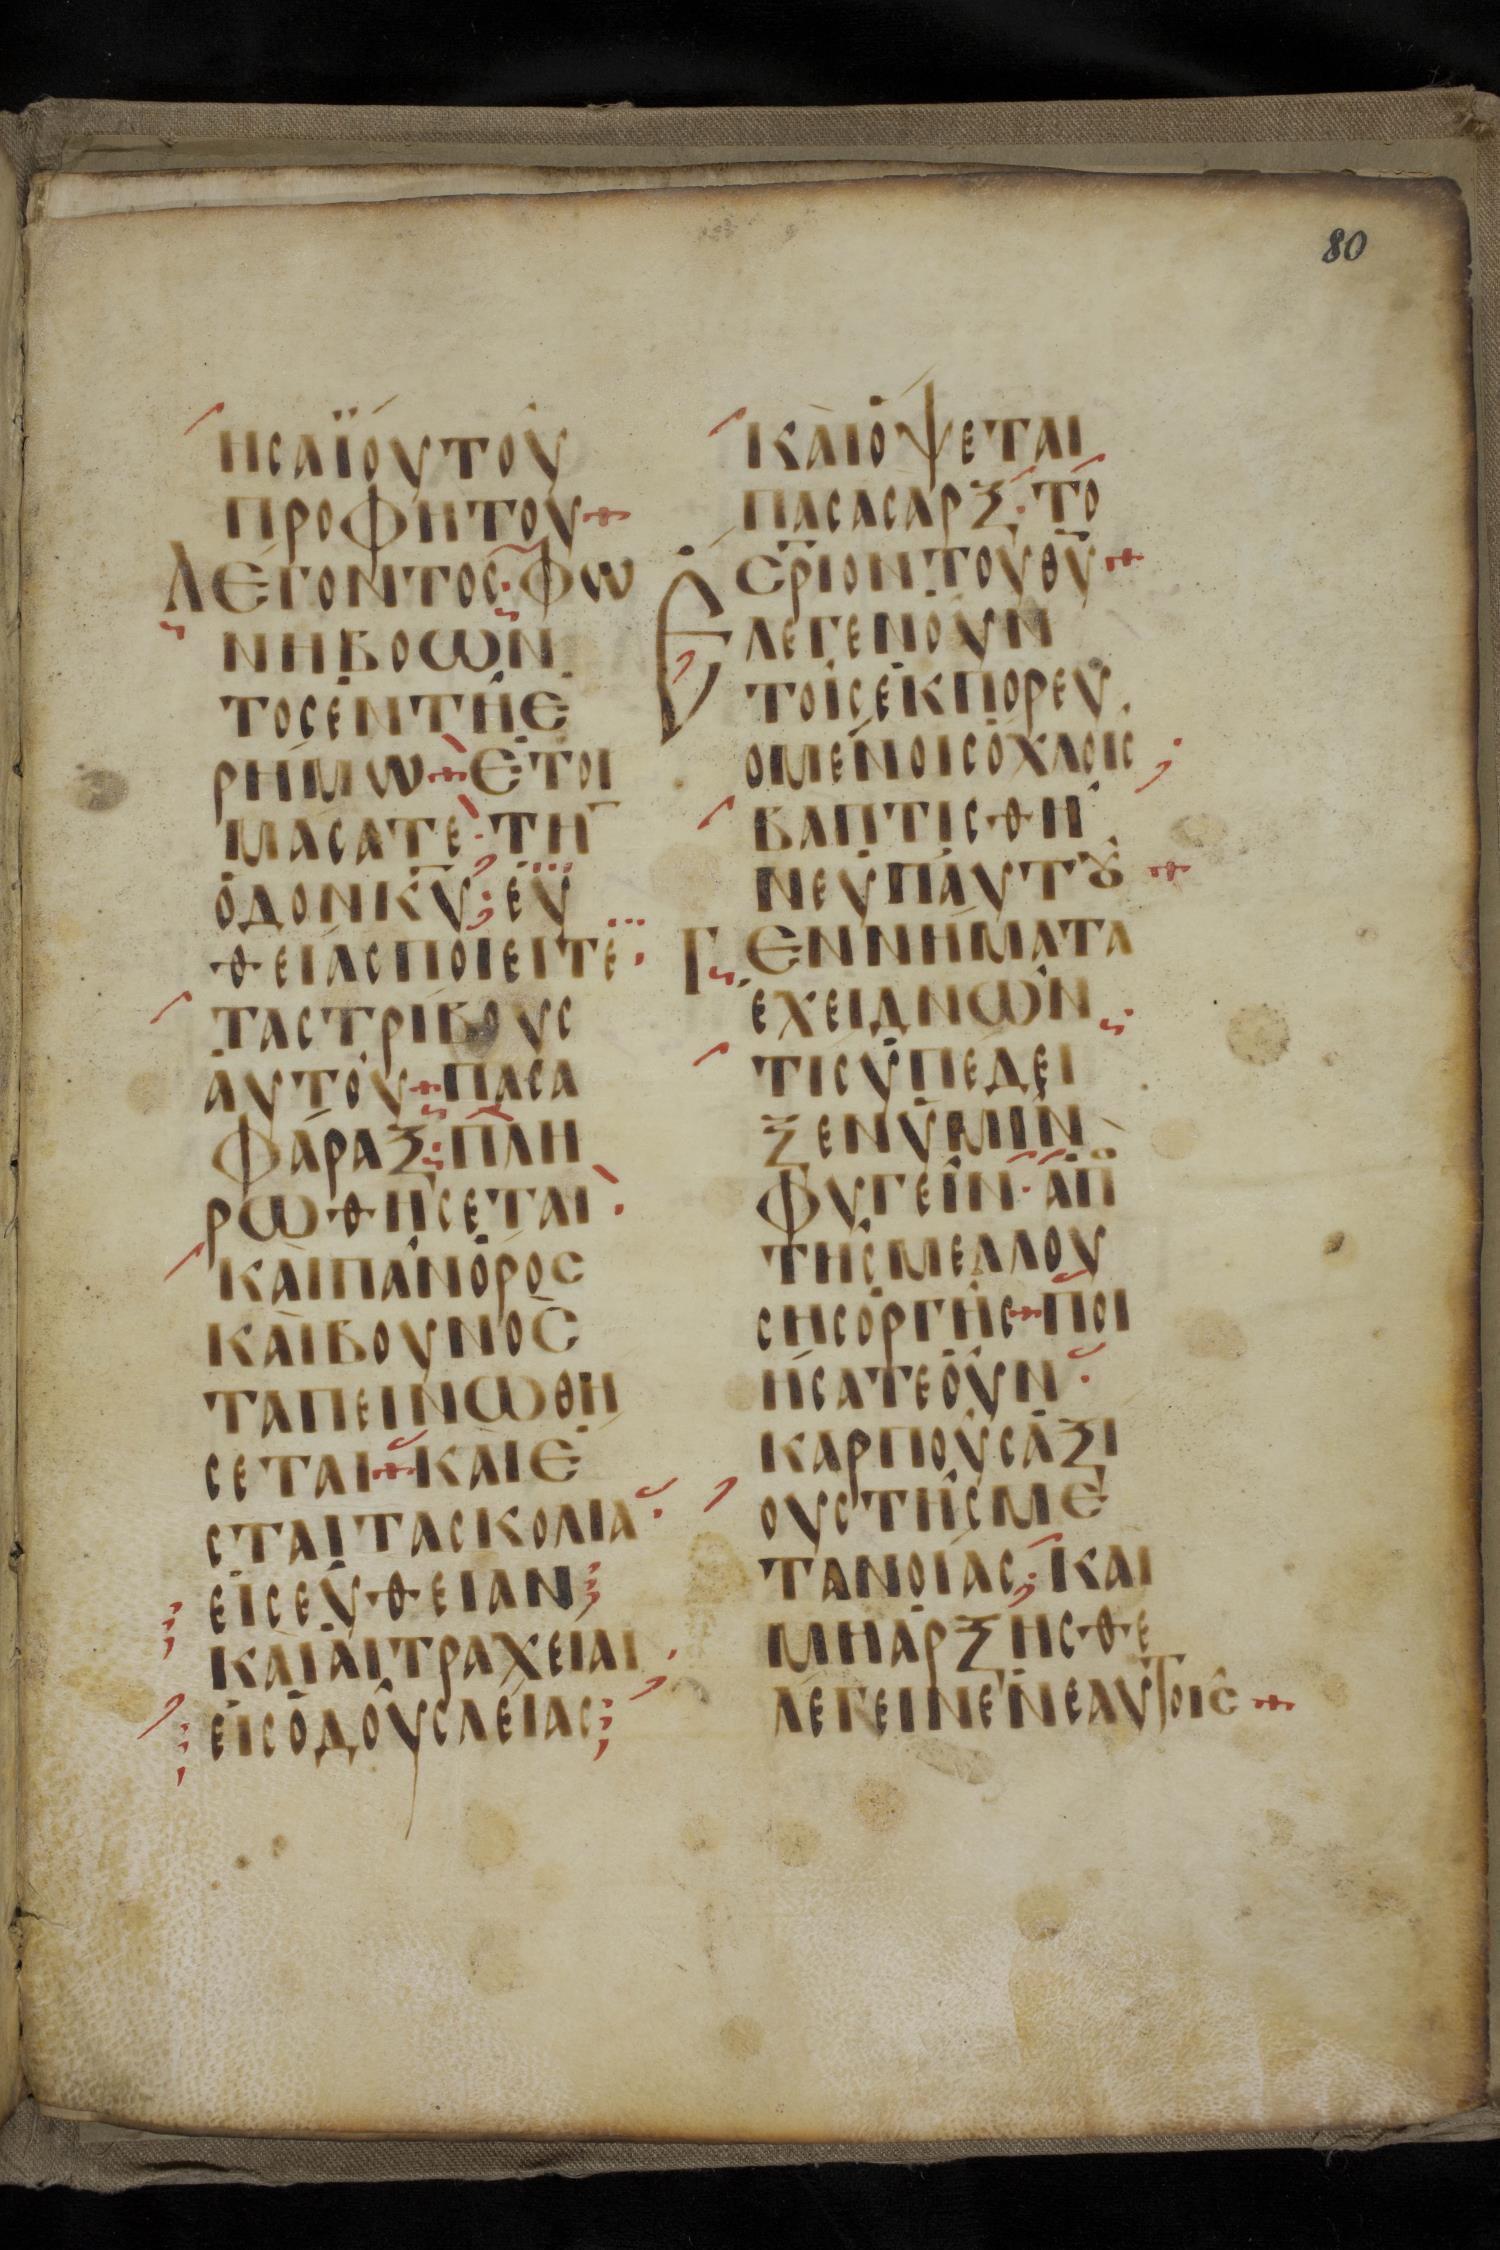 80
ΗСΑΪΟΥΤΟΥ
ΠΡΟΦΗΤΟΥ
ΛΕΓΟΝΤΟС·ΦΩ
ΝΗΒΟΩΝ
ΤΟСΕΝΤΗΕ
ΡΗΜΩΕΤΟΙ
ΜΑСΑΤΕ·ΤΗ̅
ΟΔΟΝΚ̅Υ̅ΕΥ
ΘΕΙΑСΠΟΙΕΙΤΕ
ΤΑСΤΡΙΒΟΥС
ΑΥΤΟΥΠΑСΑ
ΦΑΡΑΞΠΛΗ
ΡΩΘΗСΕΤΑΙ
ΚΑΙΠΑΝΟΡΟС
ΚΑΙΒΟΥΝΟС
ΤΑΠΕΙΝΩΘΗ
СΕΤΑΙΚΑΙΕ
СΤΑΙΤΑСΚΟΛΙΑ
ΕΙСΕΥΘΕΙΑΝ
ΚΑΙΑΙΤΡΑΧΕΙΑΙ
ΕΙСΟΔΟΥСΛΕΙΑС
ΚΑΙΟΨΕΤΑΙ
ΠΑСΑСΑΡΞ·ΤΟ
С̅Ρ̅ΙΟΝΤΟΥΘ̅Υ̅
ΕΛΕΓΕΝΟΥΝ
ΤΟΙСΕΚΠΟΡΕΥ
ΟΜΕΝΟΙСΟΧΛΟΙС
ΒΑΠΤΙСΘΗ
ΝΕΥΠΑΥΤȢ
ΓΕΝΝΗΜΑΤΑ
ΕΧΕΙΔΝΩΝ
ΤΙСΥΠΕΔΕΙ
ΞΕΝΥΜΙΝ
ΦΥΓΕΙΝ·ΑΠ
ΤΗСΜΕΛΛΟΥ
СΗСΟΡΓΗСΠΟΙ
ΗСΑΤΕΟΥΝ
ΚΑΡΠΟΥСΑΞΙ
ΟΥСΤΗСΜΕ
ΤΑΝΟΙΑСΚΑΙ
ΜΗΑΡΞΗСΘΕ
ΛΕΓΕΙΝΕΝΕΑΥΤΟΙС